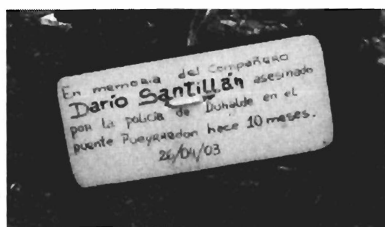 En memoria del Compañero
Darío Santillán asesinado
por la policía de Duhalde en el
puente Pueyrredon hace 10 meses.
26/04/03